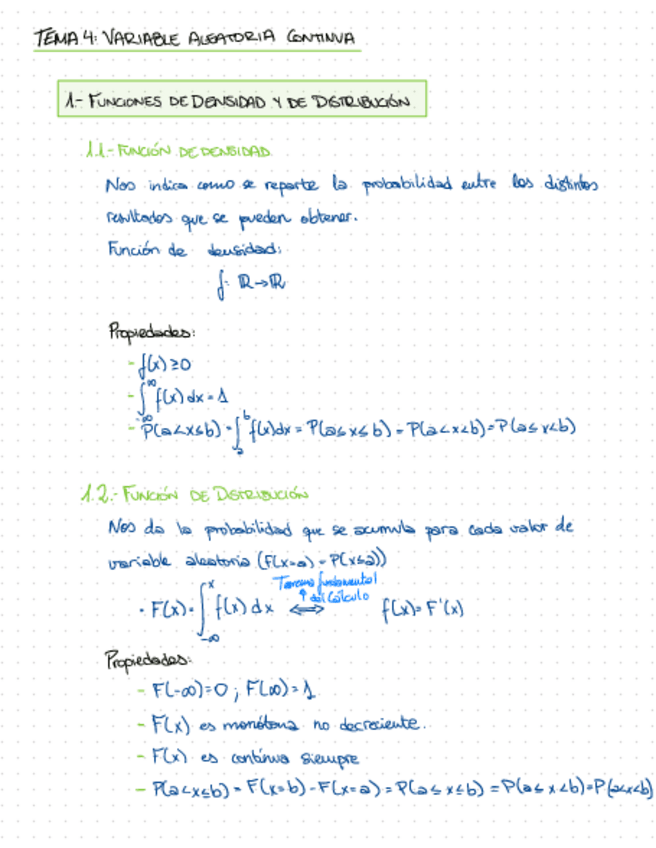 TEMA 4: VARIABLE ALEATORIA CONTINUA
1.- FUNCIONES DE DENSIDAD Y DE DISTRIBUCIÓN
1.1.- FUNCIÓN DE DENSIDAD
Nos indica como se reparte la probabilidad entre los distintos
resultados que se pueden obtener.
Función de densidad:
f: ℝ→ℝ
Propiedades:
- f(x) ≥ 0
- ∫_{-∞}^{∞} f(x) dx = 1
- P(a<x≤b) = ∫_a^b f(x)dx = P(a≤x≤b) = P(a<x<b) = P(a≤x<b)
1.2.- FUNCIÓN DE DISTRIBUCIÓN
Nos da la probabilidad que se acumula para cada valor de
variable aleatoria (F(x=a) = P(x≤a))
Teorema fundamental
↑ del Cálculo
• F(x) = ∫_{-∞}^x f(x) dx ⟺ f(x) = F'(x)
Propiedades:
- F(-∞)=0 ; F(∞)=1
- F(x) es monótona no decreciente.
- F(x) es contínua siempre
- P(a<x≤b) = F(x=b) - F(x=a) = P(a≤x≤b) = P(a≤x<b) = P(a<x<b)